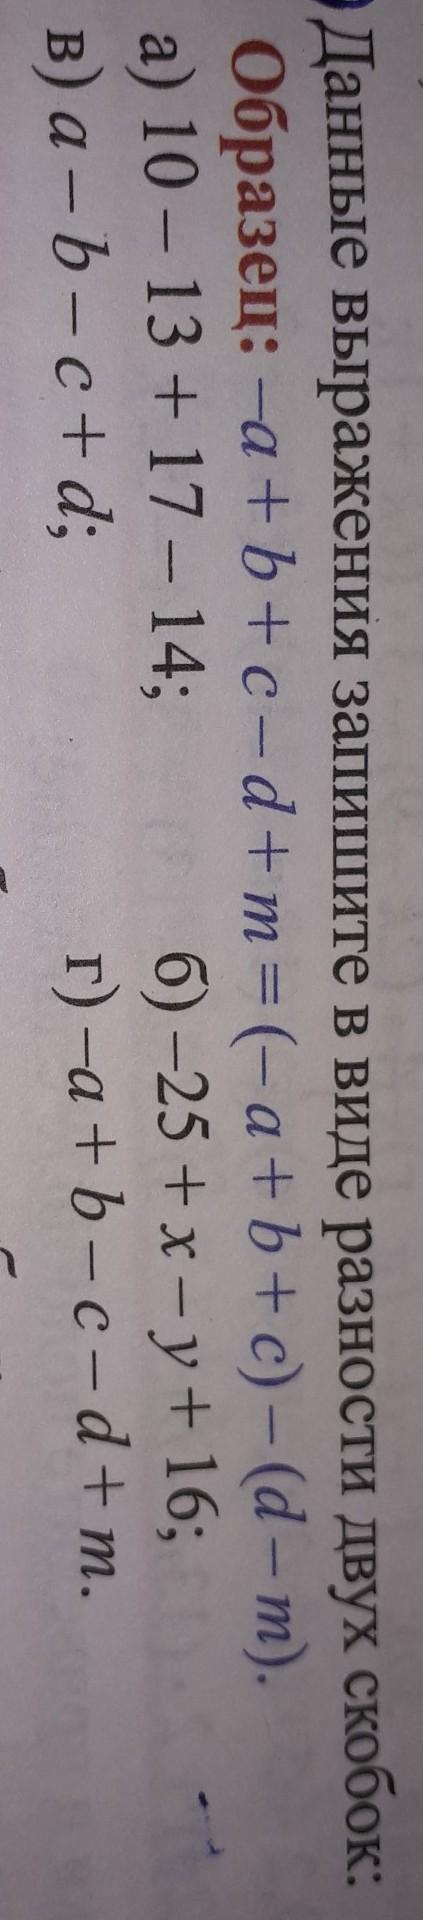 Данные выражения запишите в виде разности двух скобок:
Образец: –a + b + c – d + m = (– a + b + c) – (d – m).
а) 10 – 13 + 17 – 14; б) –25 + x – y + 16;
в) a – b – c + d; г) –a + b – c – d + m.